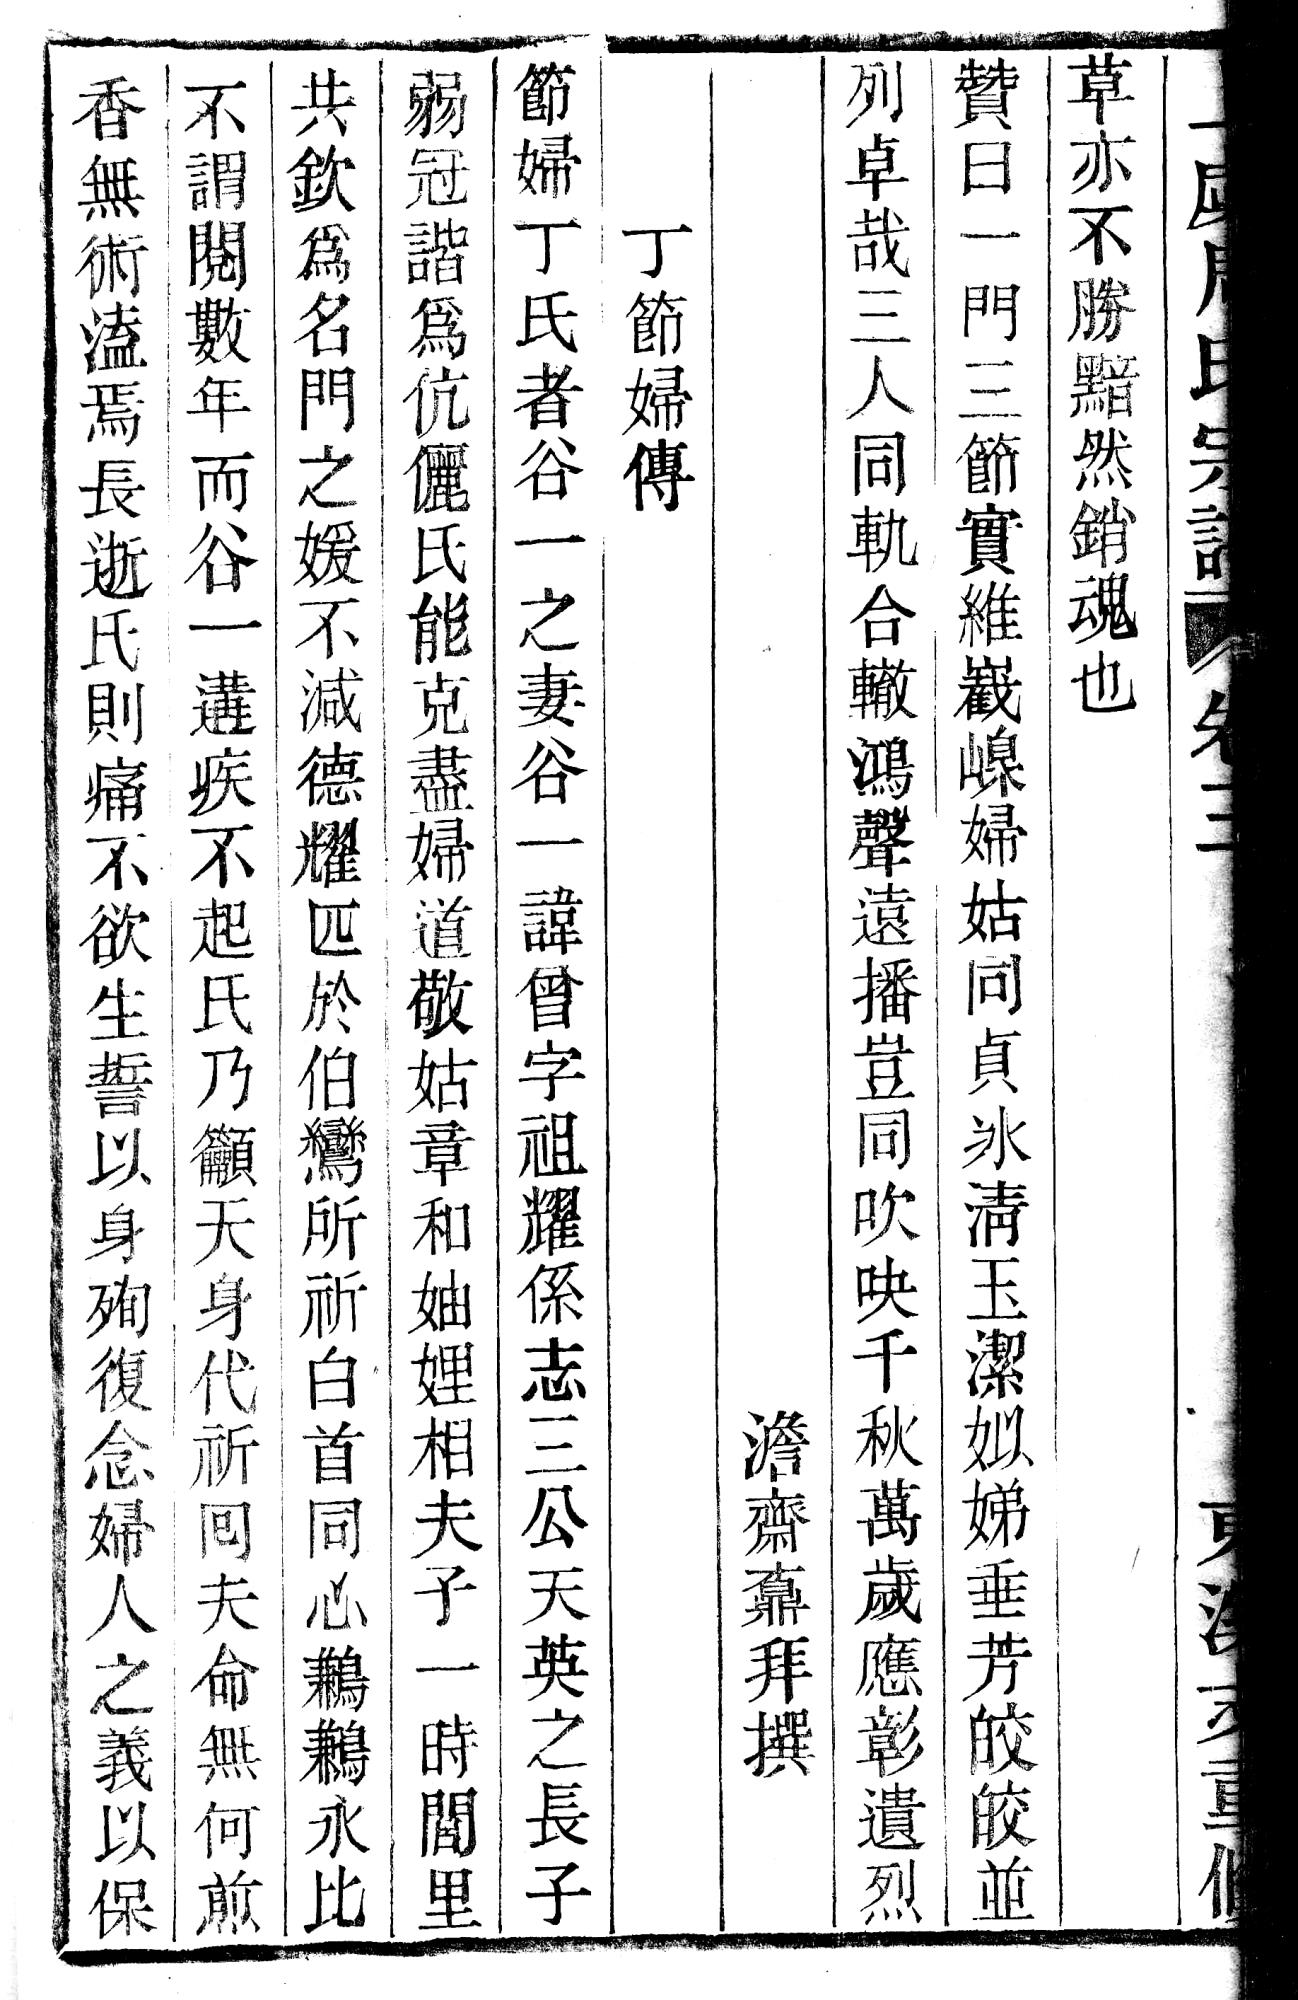 周氏宗譜 卷三 重修
草亦不勝黯然銷魂也
贊曰一門三節實維嶻嵲婦姑同貞氷淸玉潔姒娣垂芳皎皎並
列卓哉三人同軌合轍鴻聲遠播豈同吹吷千秋萬歲應彰遺烈
澹齋鼐拜撰
丁節婦傳
節婦丁氏者谷一之妻谷一諱曾字祖耀係志三公天英之長子
弱冠諧爲伉儷氏能克盡婦道敬姑章和妯娌相夫子一時閭里
共欽爲名門之媛不減德耀匹於伯鸞所祈白首同心鶼鶼永比
不謂閱數年而谷一遘疾不起氏乃籲天身代祈囘夫命無何煎
香無術溘焉長逝氏則痛不欲生誓以身殉復念婦人之義以保